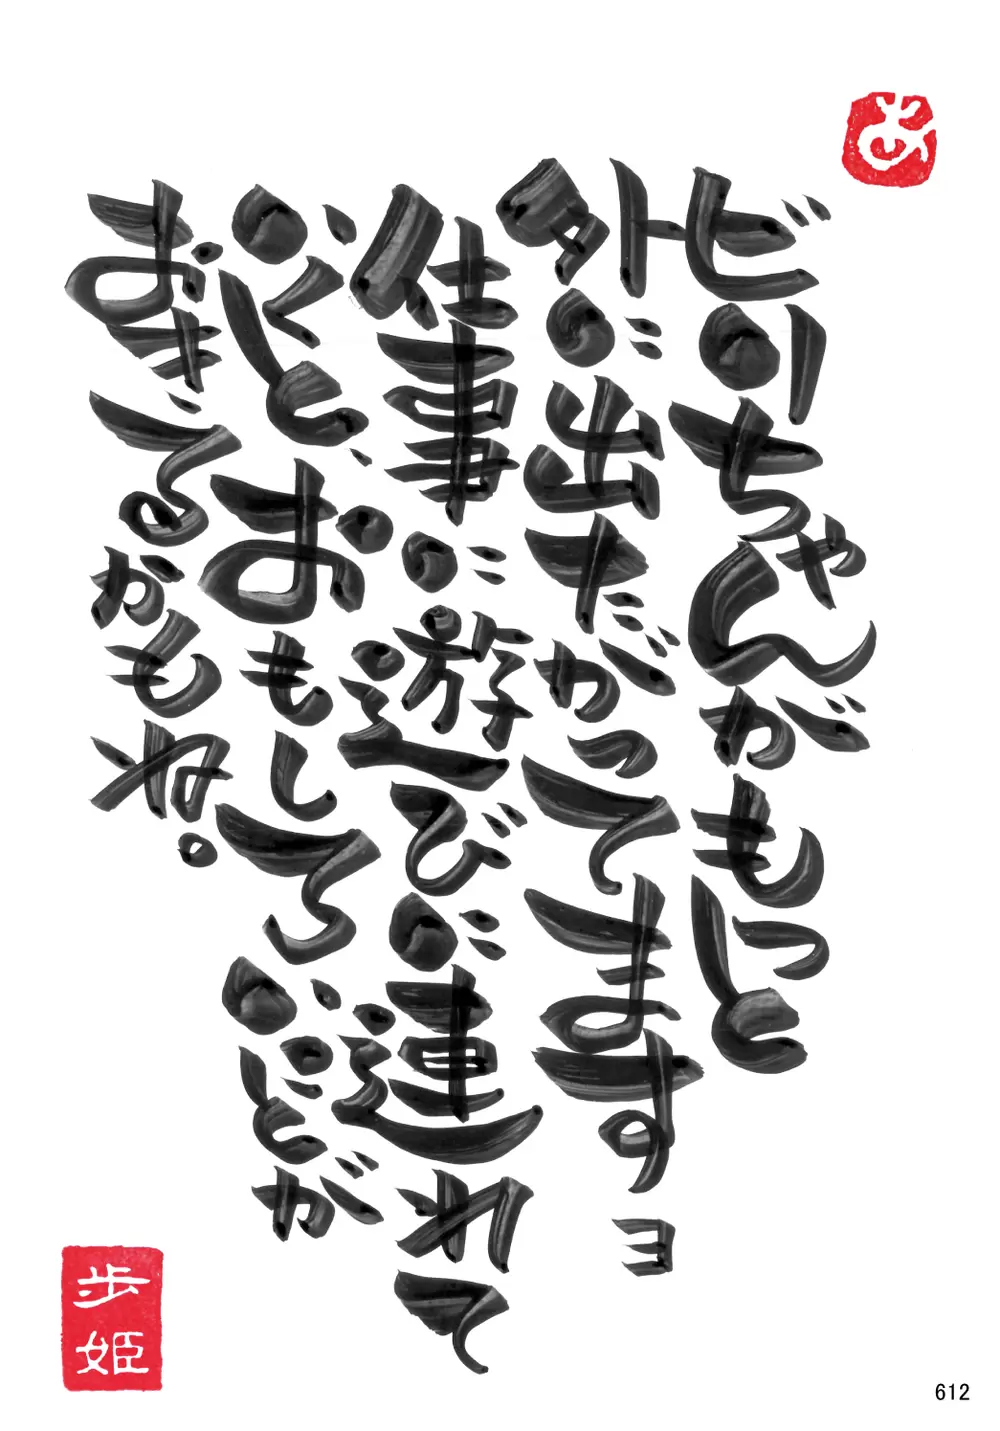 あ
ビーちゃんがもっと
外に出たがってますヨ
仕事に遊びに連れて
いくと、おもしろいことが
おきるかもね。
歩姫
612